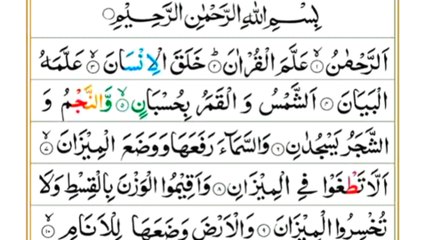 بِسْمِ اللهِ الرَّحْمٰنِ الرَّحِيْمِ
اَلرَّحْمٰنُ ۙ﴿۱﴾ عَلَّمَ الْقُرْاٰنَ ؕ﴿۲﴾ خَلَقَ الْاِنْسَانَ ۙ﴿۳﴾ عَلَّمَهُ
الْبَيَانَ ﴿۴﴾ اَلشَّمْسُ وَ الْقَمَرُ بِحُسْبَانٍ ۪﴿۵﴾ وَّالنَّجْمُ وَ
الشَّجَرُ يَسْجُدٰنِ ﴿۶﴾ وَالسَّمَآءَ رَفَعَهَا وَوَضَعَ الْمِيْزَانَ ۙ﴿۷﴾
اَلَّا تَطْغَوْا فِي الْمِيْزَانِ ﴿۸﴾ وَاَقِيْمُوا الْوَزْنَ بِالْقِسْطِ وَلَا
تُخْسِرُوا الْمِيْزَانَ ﴿۹﴾ وَالْاَرْضَ وَضَعَهَا لِلْاَنَامِ ۙ﴿۱۰﴾